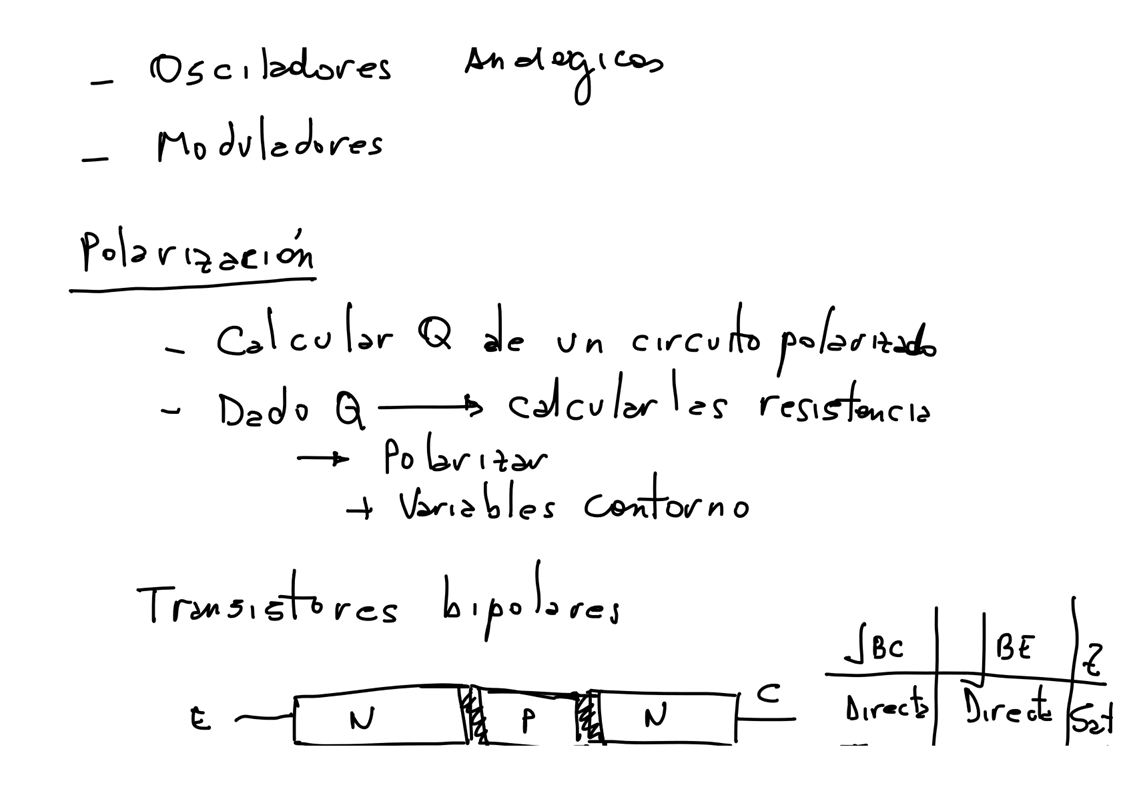 - Osciladores Analogicos
- Moduladores
Polarización
- Calcular Q de un circuito polarizado
- Dado Q → calcular las resistencia
→ Polarizar
+ Variables contorno
Transistores bipolares
JBC JBE Z
Directa Directa Sat
E N P N C